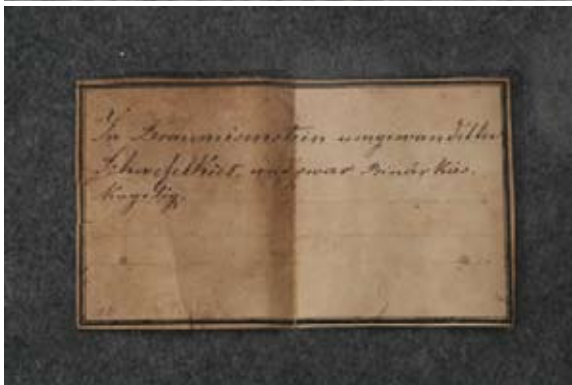 In Brauneisenstein umgewandelter
Schwefelkies, und zwar Binärkies.
Kugelig.